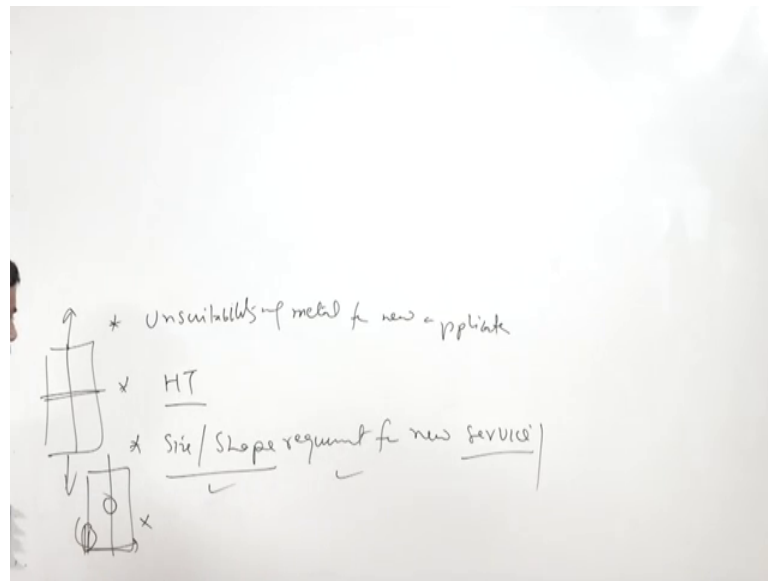 * Unsuitability of metal for new applicate
* HT
* Size / Shape requumt for new service
*